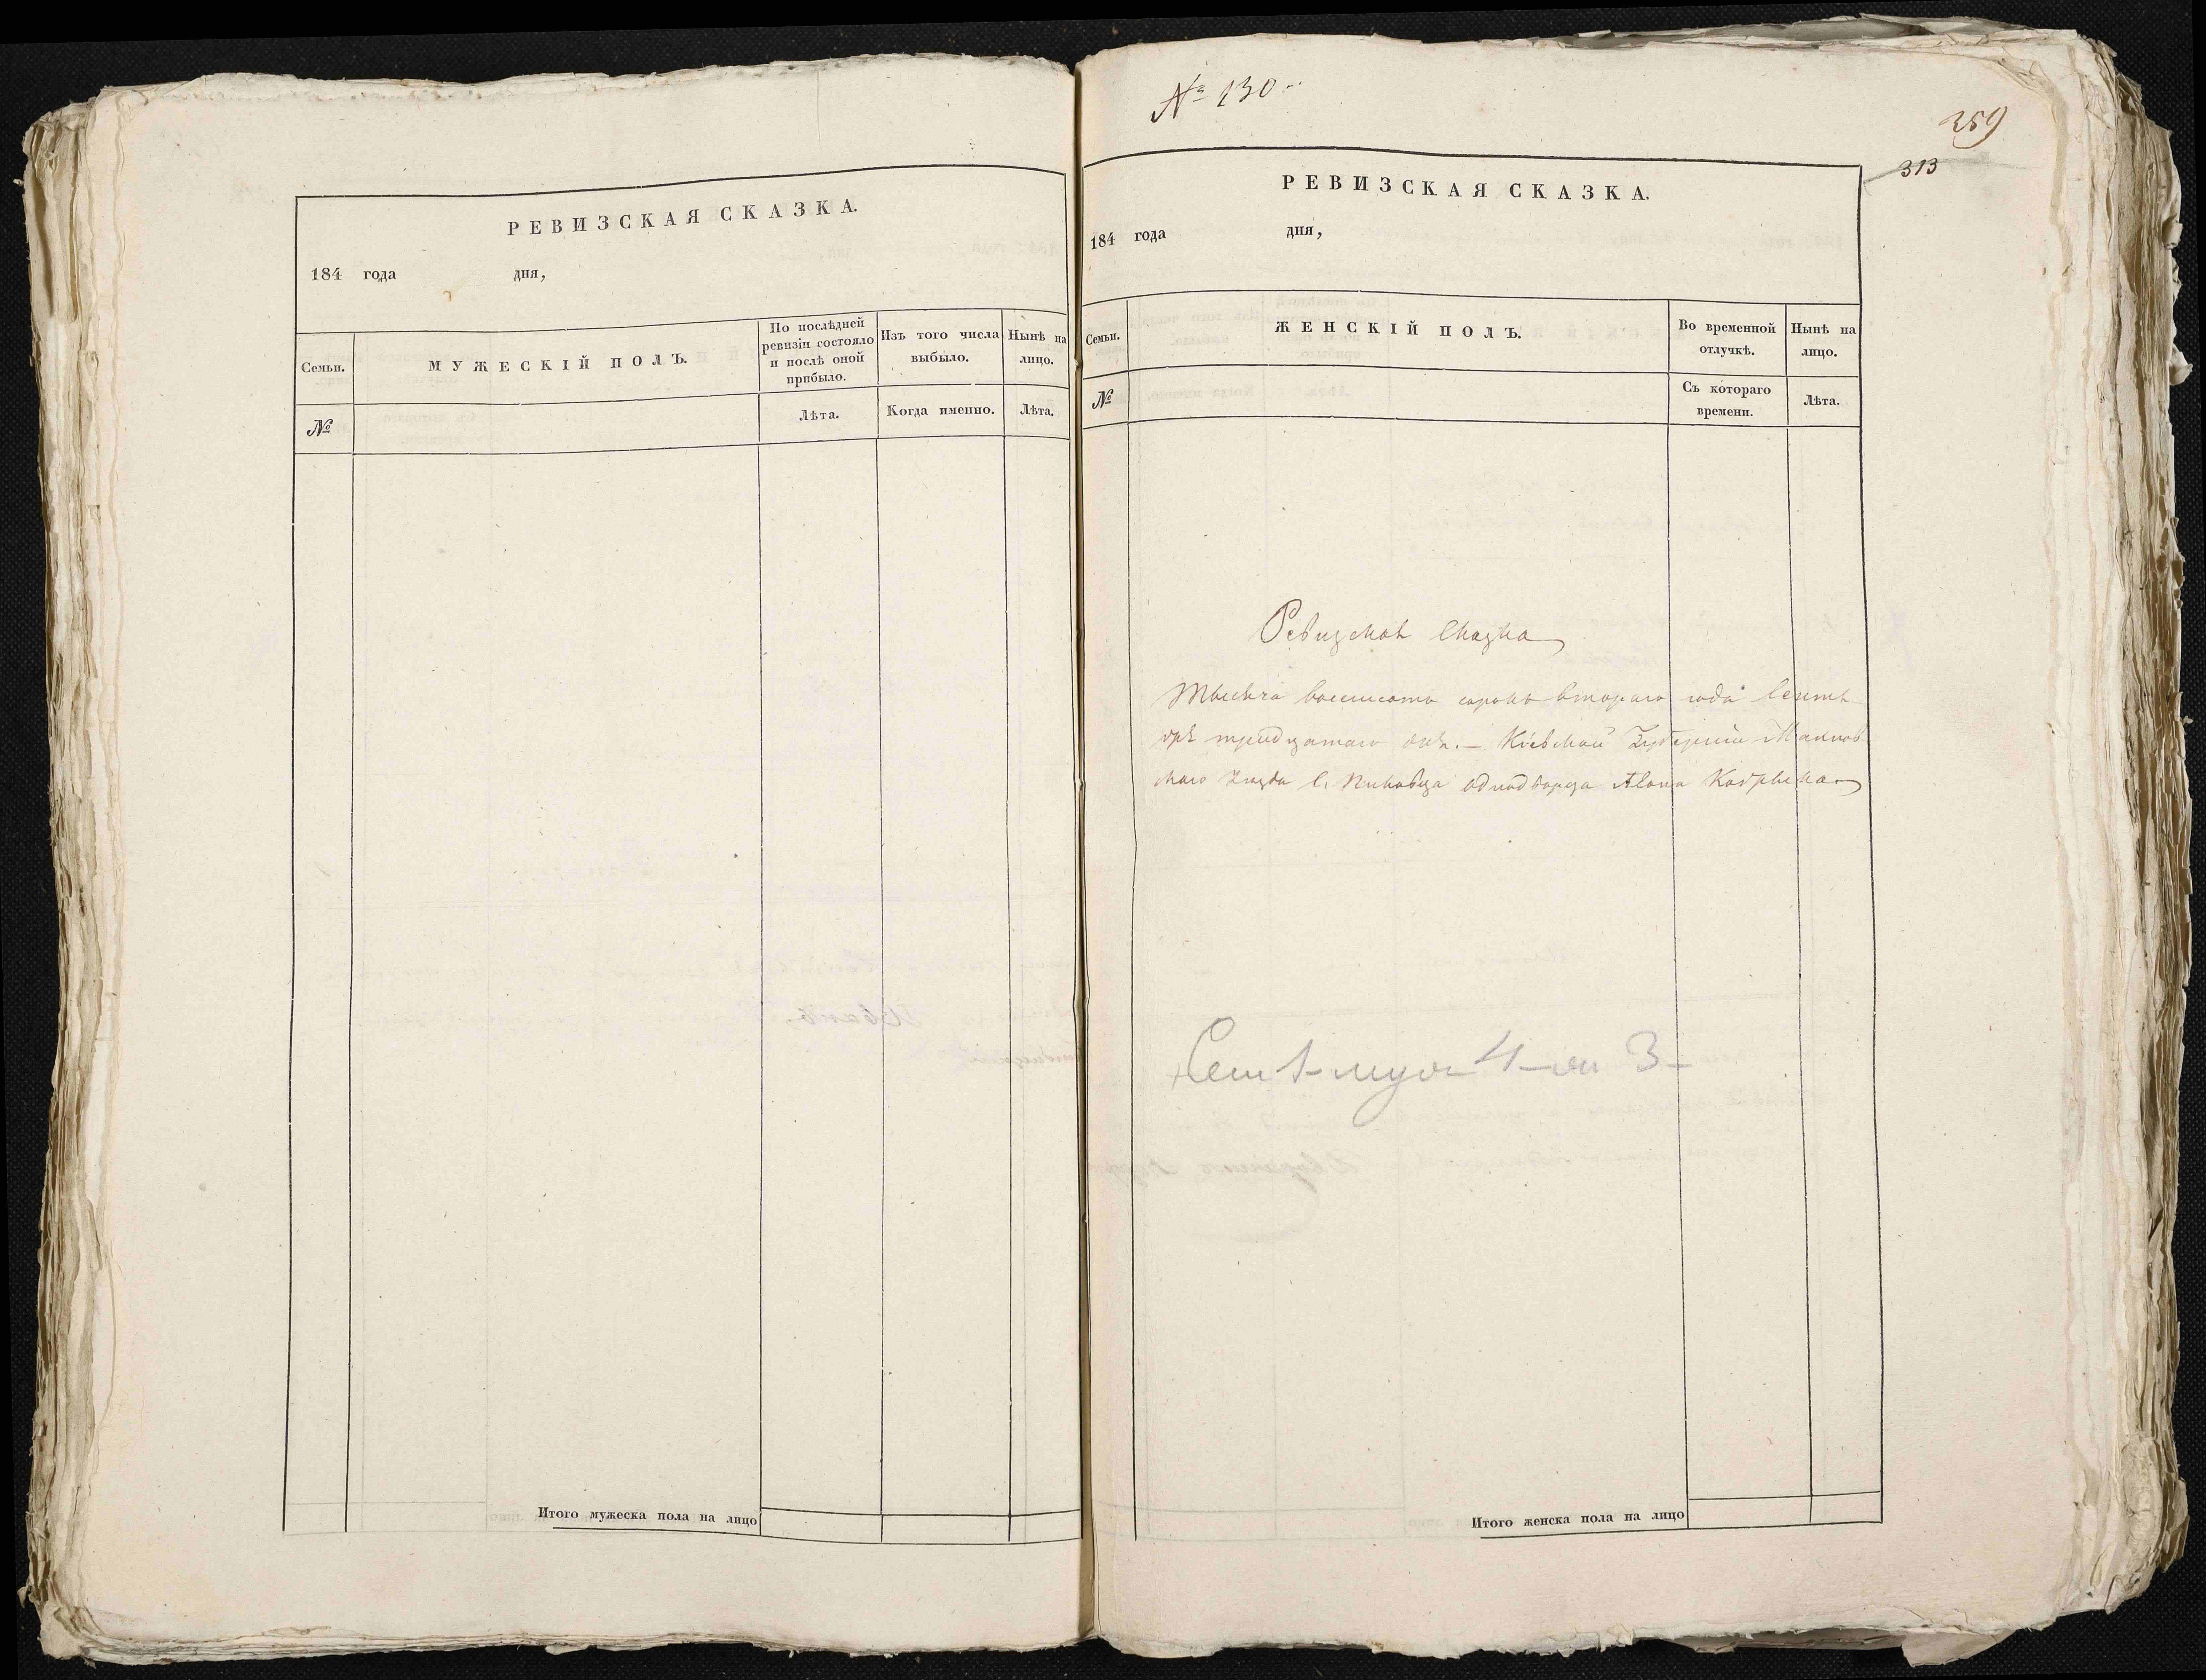 РЕВИЗСКАЯ СКАЗКА.
184 года дня,
Семьи.
МУЖЕСКІЙ ПОЛЪ.
По послѣдней ревизіи состояло и послѣ оной прибыло.
Изъ того числа выбыло.
Нынѣ на лицо.
№
Лѣта.
Когда именно.
Лѣта.
Итого мужеска пола на лицо
№ 130
359
313
РЕВИЗСКАЯ СКАЗКА.
184 года дня,
Семьи.
ЖЕНСКІЙ ПОЛЪ.
Во временной отлучкѣ.
Нынѣ на лицо.
№
Съ котораго времени.
Лѣта.
Ревизская Сказка
Тысяча восемсотъ сорокъ втораго года Сентя-
бря тридцатаго дня. — Кіевской Губерніи Липов
скаго Уезда С. Пиковца однодворца
Сем 1 - муж 4 - 3 -
Итого женска пола на лицо